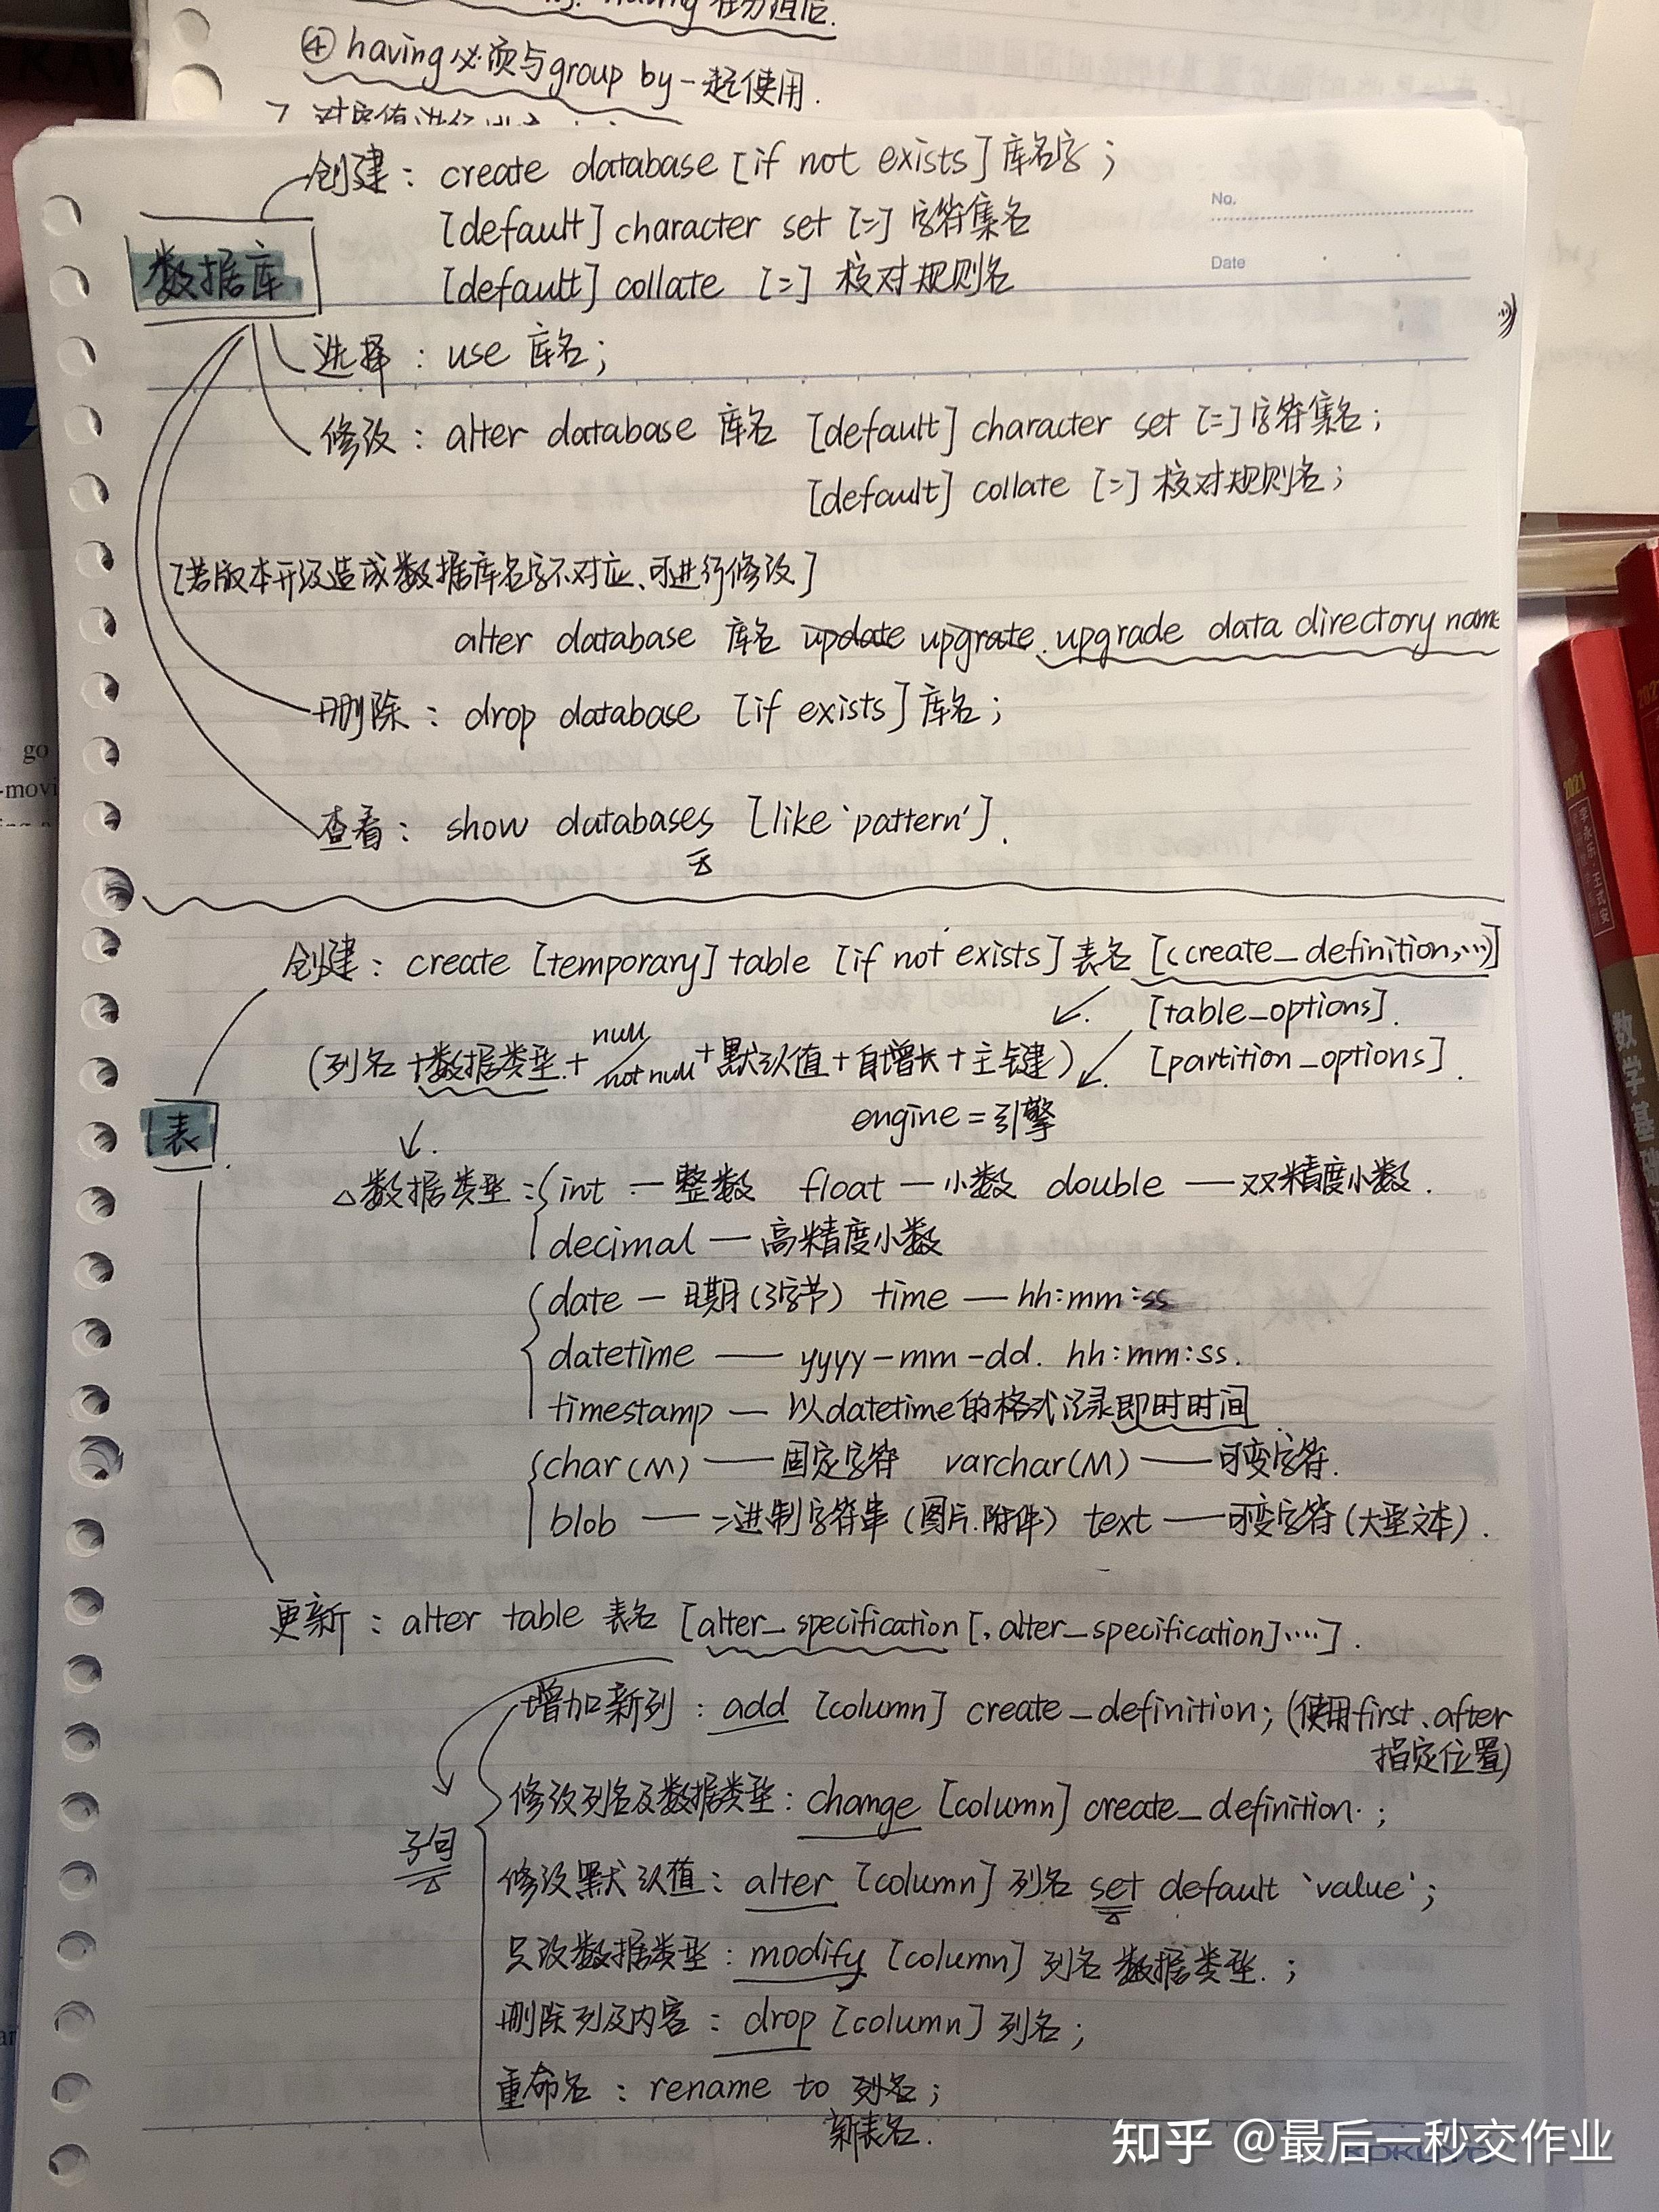 having 在分组后.
④ having必须与group by一起使用.
创建: create database [if not exists] 库名字;
No.
[default] character set [=] 字符集名
Date
数据库
[default] collate [=] 校对规则名
选择: use 库名;
修改: alter database 库名 [default] character set [=] 字符集名;
[default] collate [=] 校对规则名;
[若版本升级造成数据库名字不对应、可进行修改]
alter database 库名 update upgrate. upgrade data directory name
删除: drop database [if exists] 库名;
查看: show databases [like 'pattern'].
创建: create [temporary] table [if not exists] 表名 [(create_definition,…)]
[table_options].
null
(列名+数据类型+not null+默认值+自增长+主键)
[partition_options].
engine=引擎
表
△数据类型: int — 整数 float — 小数 double — 双精度小数.
decimal — 高精度小数
date — 日期(3字节) time — hh:mm:ss
datetime — yyyy-mm-dd. hh:mm:ss.
timestamp — 以datetime的格式记录即时时间
char(M) — 固定字符 varchar(M) — 可变字符.
blob — 二进制字符串(图片.附件) text — 可变字符(大型文本).
更新: alter table 表名 [alter_specification[,alter_specification]….].
增加新列: add [column] create_definition; (使用first、after
指定位置)
修改列名及数据类型: change [column] create_definition.;
子句
修改默认值: alter [column] 列名 set default 'value';
只改数据类型: modify [column] 列名 数据类型.;
删除列及内容: drop [column] 列名;
重命名: rename to 列名;
新表名.
知乎 @最后一秒交作业
KOKUYO
go
-movi
2021
李永乐·王式安
数学基础